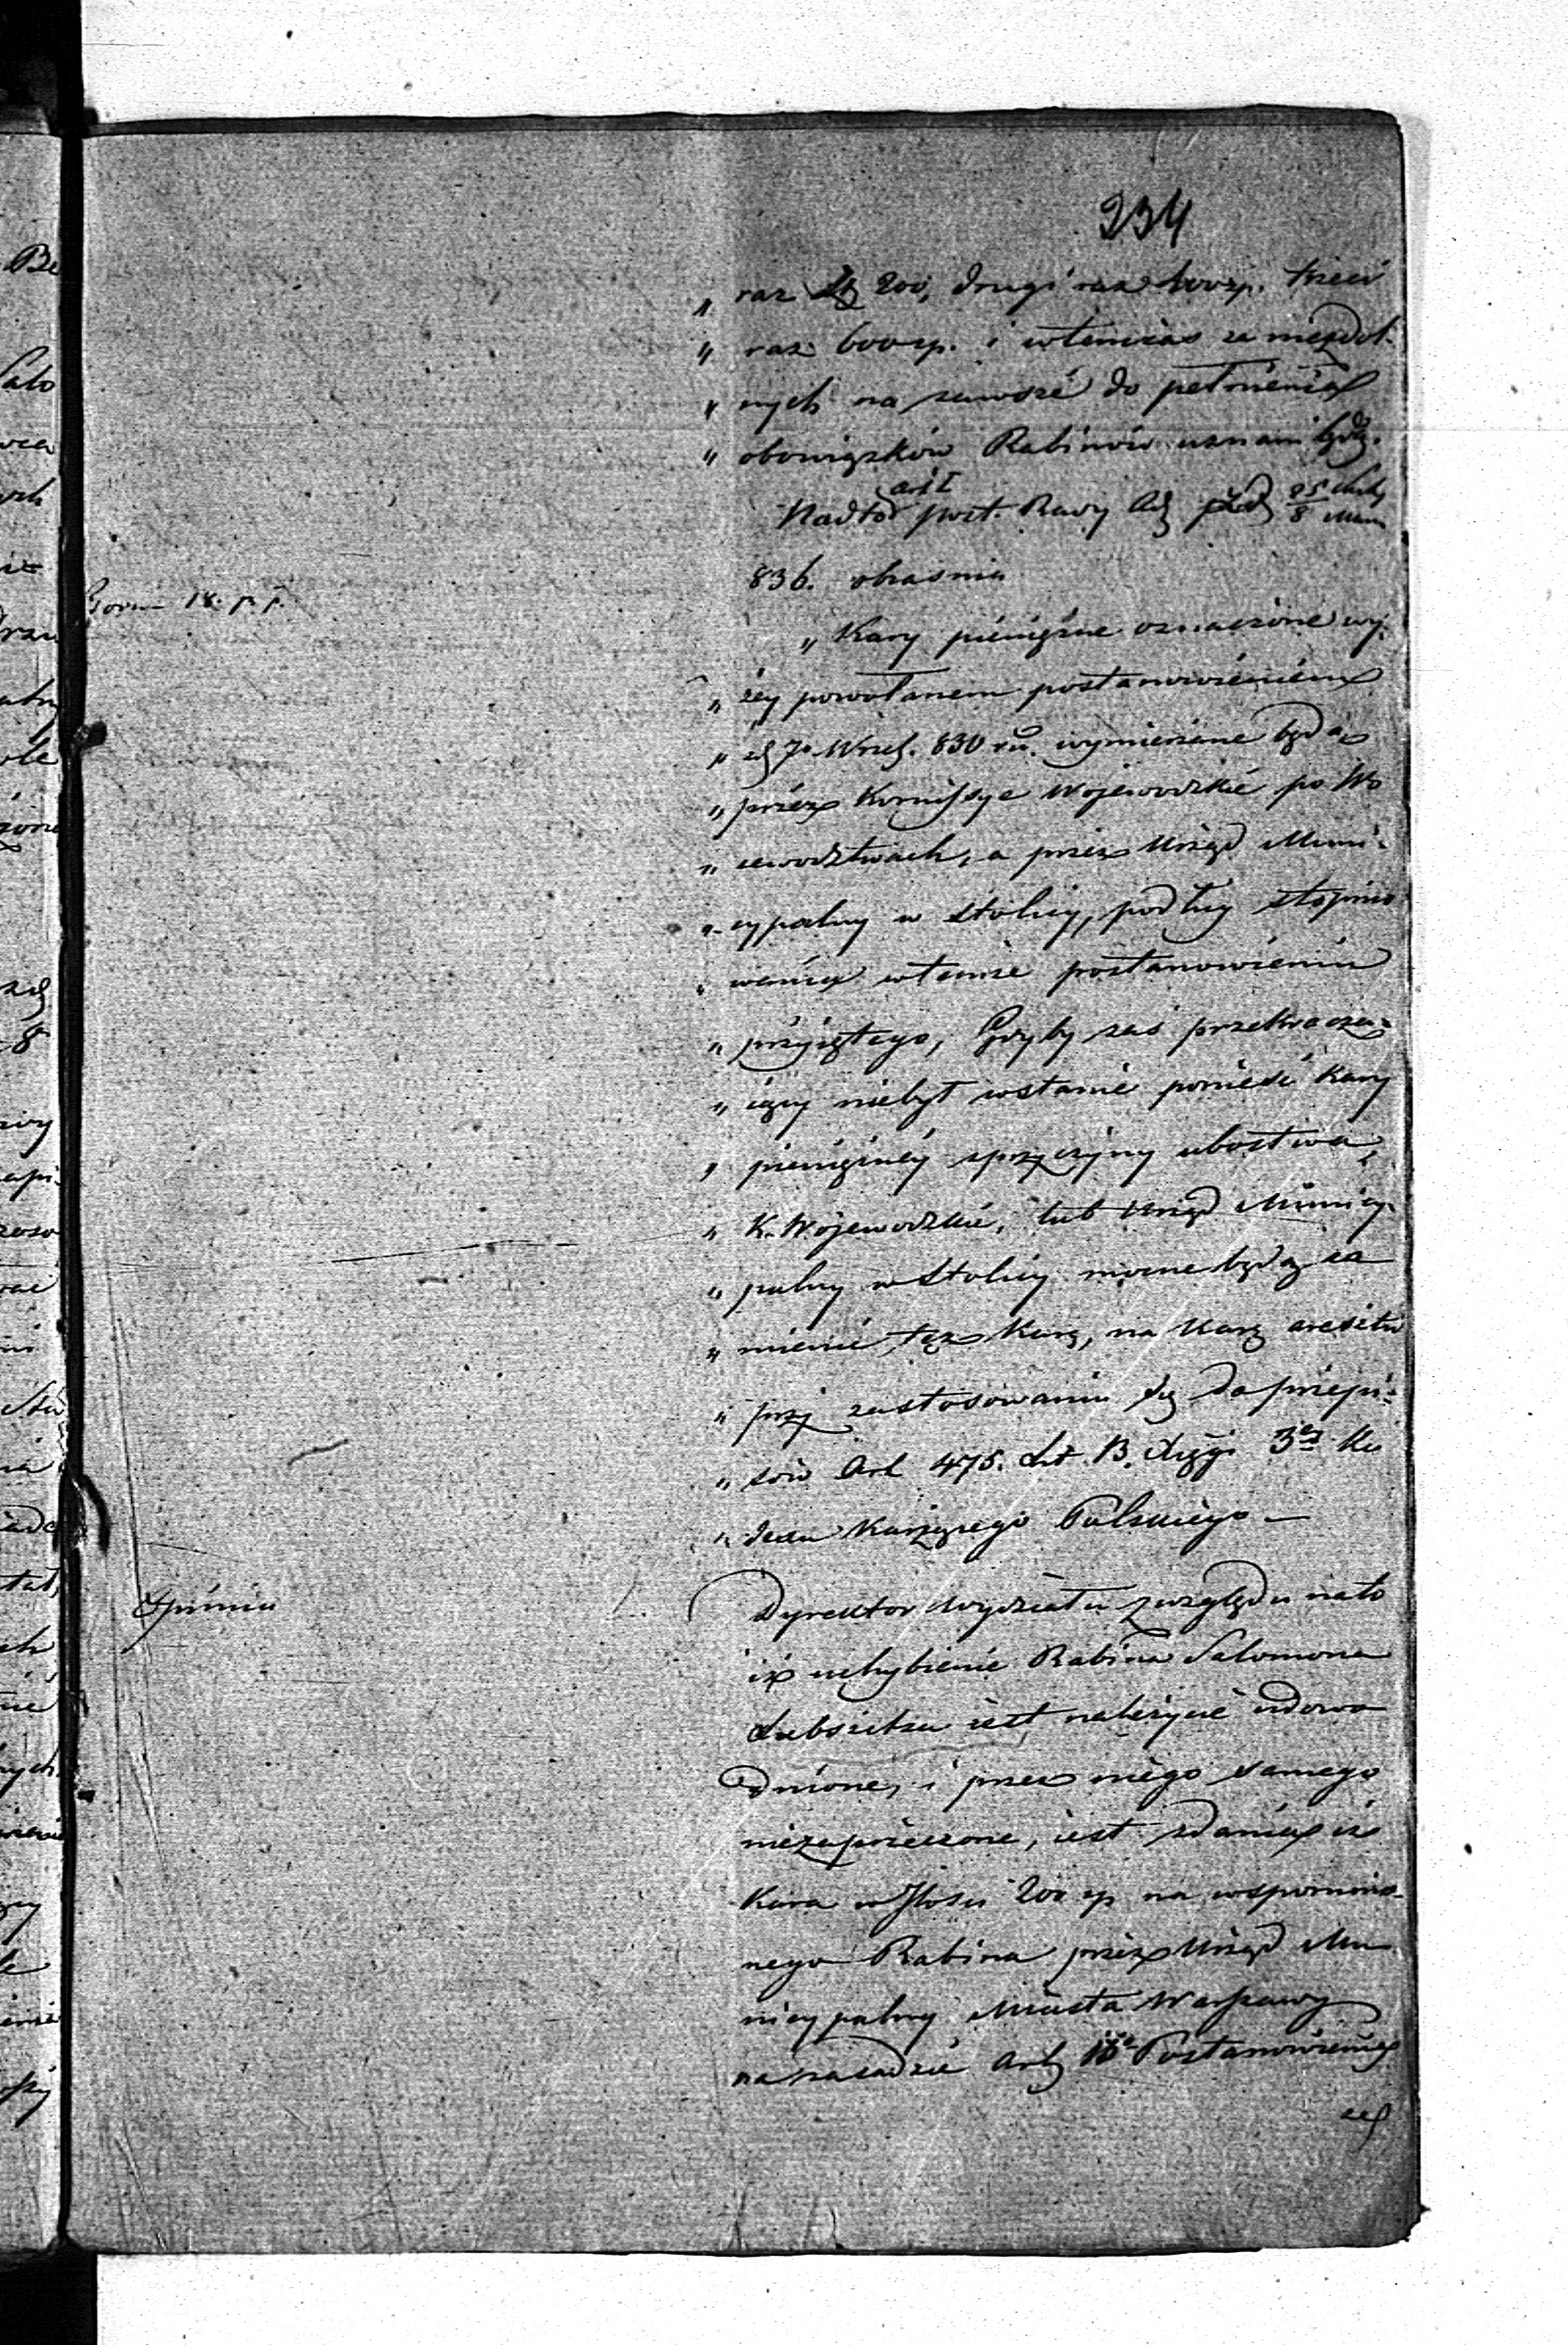 234
„ raz Zł 200, drugi raz 400 zp. trzeci
„ raz 600 zp. i wtenczas za niezdol-
„ nych na zawsze do pełnienia
„ obowiązków Rabinów uznani będą.
art I
Nadto post. Rady Adm 25 8
836. obiasnia
Tom 18.
„ Kary pieniężne oznaczone wy-
„ żey powołanem postanowieniem
„ z d 7o Wrześ. 830 ru. wymierzane będą
„ przez Kommissye Wojewodzkie po Wo
„ iewodztwach, a przez Urząd Muni-
„ cypalny w Stolicy, podług stopnio
„ wania wtemże postanowieniu
„ przyiętego, Gdyby zaś przekracza-
„ iący niebył wstanie ponieść Kary
„ pieniężnéy zprzyczyny ubóstwa,
„ K. Wojewodzkie, lub Urząd Municy-
„ palny w Stolicy mocne będą za
„ mienić tęż Karę, na Karę aresztu
„ przy zastosowaniu się do przepi-
„ sów Art 475. Lit. B. Xięgi 3ej Ko
„ dexu Karzącego Polskiego —
Opinia
Dyrektor Wydziału zewzględu nato
iż uchybienie Rabina Salomona
Lubszitza iest należycie udowo
dnione, i przez niego samego
niezaprzeczone, iest zdania iż
Kara wilości 200 zp na wspomnio-
nego Rabina przez Urząd Mu
nicypalny Miasta Warszawy
na zasadzie Art Postanowienia